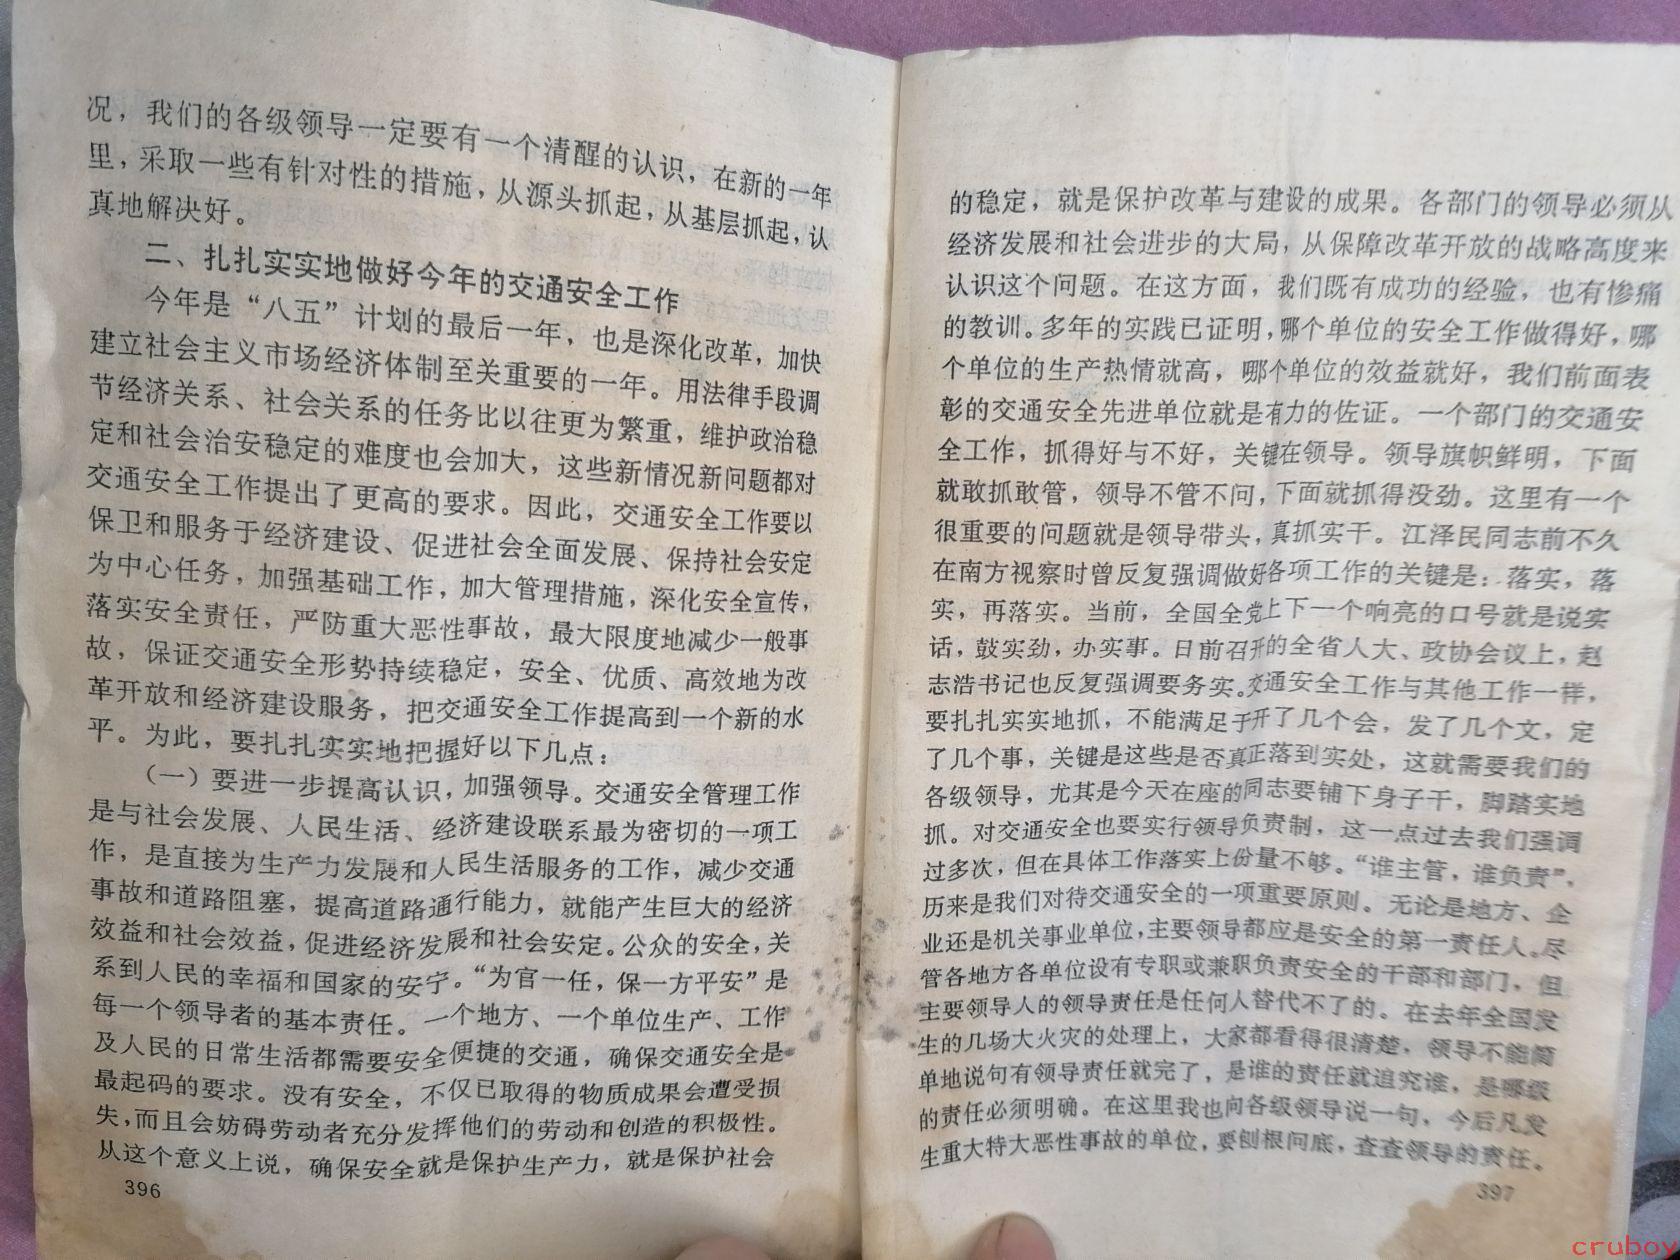 况，我们的各级领导一定要有一个清醒的认识，在新的一年
里，采取一些有针对性的措施，从源头抓起，从基层抓起，认
真地解决好。
二、扎扎实实地做好今年的交通安全工作
今年是“八五”计划的最后一年，也是深化改革，加快
建立社会主义市场经济体制至关重要的一年。用法律手段调
节经济关系、社会关系的任务比以往更为繁重，维护政治稳
定和社会治安稳定的难度也会加大，这些新情况新问题都对
交通安全工作提出了更高的要求。因此，交通安全工作要以
保卫和服务于经济建设、促进社会全面发展、保持社会安定
为中心任务，加强基础工作，加大管理措施，深化安全宣传，
落实安全责任，严防重大恶性事故，最大限度地减少一般事
故，保证交通安全形势持续稳定，安全、优质、高效地为改
革开放和经济建设服务，把交通安全工作提高到一个新的水
平。为此，要扎扎实实地把握好以下几点：
（一）要进一步提高认识，加强领导。交通安全管理工作
是与社会发展、人民生活、经济建设联系最为密切的一项工
作，是直接为生产力发展和人民生活服务的工作，减少交通
事故和道路阻塞，提高道路通行能力，就能产生巨大的经济
效益和社会效益，促进经济发展和社会安定。公众的安全，关
系到人民的幸福和国家的安宁。“为官一任，保一方平安”是
每一个领导者的基本责任。一个地方、一个单位生产、工作
及人民的日常生活都需要安全便捷的交通，确保交通安全是
最起码的要求。没有安全，不仅已取得的物质成果会遭受损
失，而且会妨碍劳动者充分发挥他们的劳动和创造的积极性。
从这个意义上说，确保安全就是保护生产力，就是保护社会
396
的稳定，就是保护改革与建设的成果。各部门的领导必须从
经济发展和社会进步的大局，从保障改革开放的战略高度来
认识这个问题。在这方面，我们既有成功的经验，也有惨痛
的教训。多年的实践已证明，哪个单位的安全工作做得好，哪
个单位的生产热情就高，哪个单位的效益就好，我们前面表
彰的交通安全先进单位就是有力的佐证。一个部门的交通安
全工作，抓得好与不好，关键在领导。领导旗帜鲜明，下面
就敢抓敢管，领导不管不问，下面就抓得没劲。这里有一个
很重要的问题就是领导带头，真抓实干。江泽民同志前不久
在南方视察时曾反复强调做好各项工作的关键是：落实，落
实，再落实。当前，全国全党上下一个响亮的口号就是说实
话，鼓实劲，办实事。日前召开的全省人大、政协会议上，赵
志浩书记也反复强调要务实。交通安全工作与其他工作一样，
要扎扎实实地抓，不能满足于开了几个会，发了几个文，定
了几个事，关键是这些是否真正落到实处，这就需要我们的
各级领导，尤其是今天在座的同志要铺下身子干，脚踏实地
抓。对交通安全也要实行领导负责制，这一点过去我们强调
过多次，但在具体工作落实上份量不够。“谁主管，谁负责”，
历来是我们对待交通安全的一项重要原则。无论是地方、企
业还是机关事业单位，主要领导都应是安全的第一责任人。尽
管各地方各单位设有专职或兼职负责安全的干部和部门，但
主要领导人的领导责任是任何人替代不了的。在去年全国发
生的几场大火灾的处理上，大家都看得很清楚，领导不能简
单地说句有领导责任就完了，是谁的责任就追究谁，是哪级
的责任必须明确。在这里我也向各级领导说一句，今后凡发
生重大特大恶性事故的单位，要刨根问底，查查领导的责任。
397
cruboy